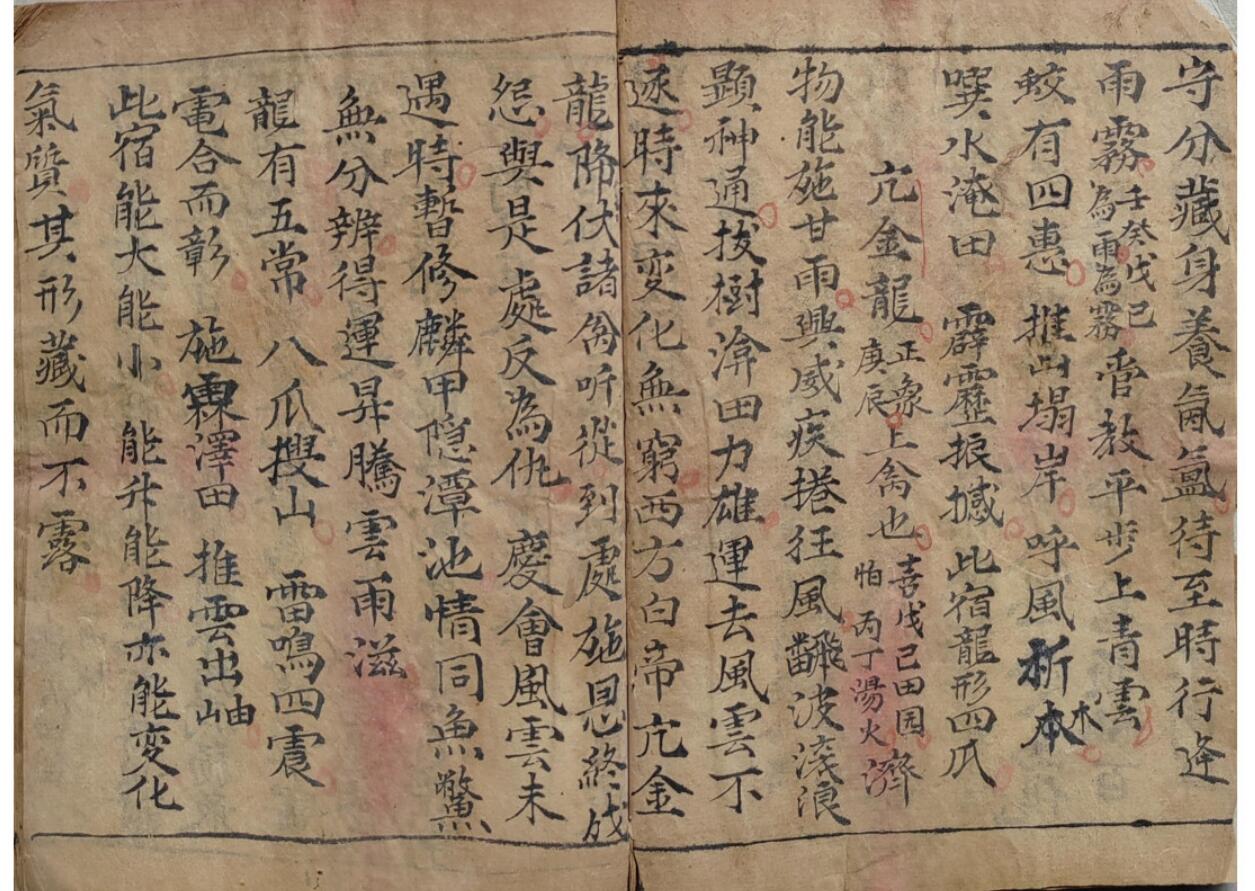 守分藏身養氤氳待至時行逢
雨霧壬癸戊己為雨為霧當教平步上青雲
蛟有四惠推山塌岸呼風析本木
噀水淹田霹靂振撼此宿龍形四爪
亢金龍正象庚辰上禽也喜戊己田园濟怕丙丁湯火
物能施甘雨興威疾捲狂風飜波滾浪
顕神通拔樹渰田力雄運去風雲不
逐時來变化無窮西方白帝亢金
龍降伏諸禽听從到處施恩終成
怨與是處反為仇慶會風雲未
遇時暫修麟甲隐潭池情同魚鱉
無分辨得運昇騰雲雨滋
龍有五常八爪搜山雷鳴四震
電合而彰施霖澤田推雲出岫
此宿能大能小能升能降亦能变化
氣質其形藏而不露